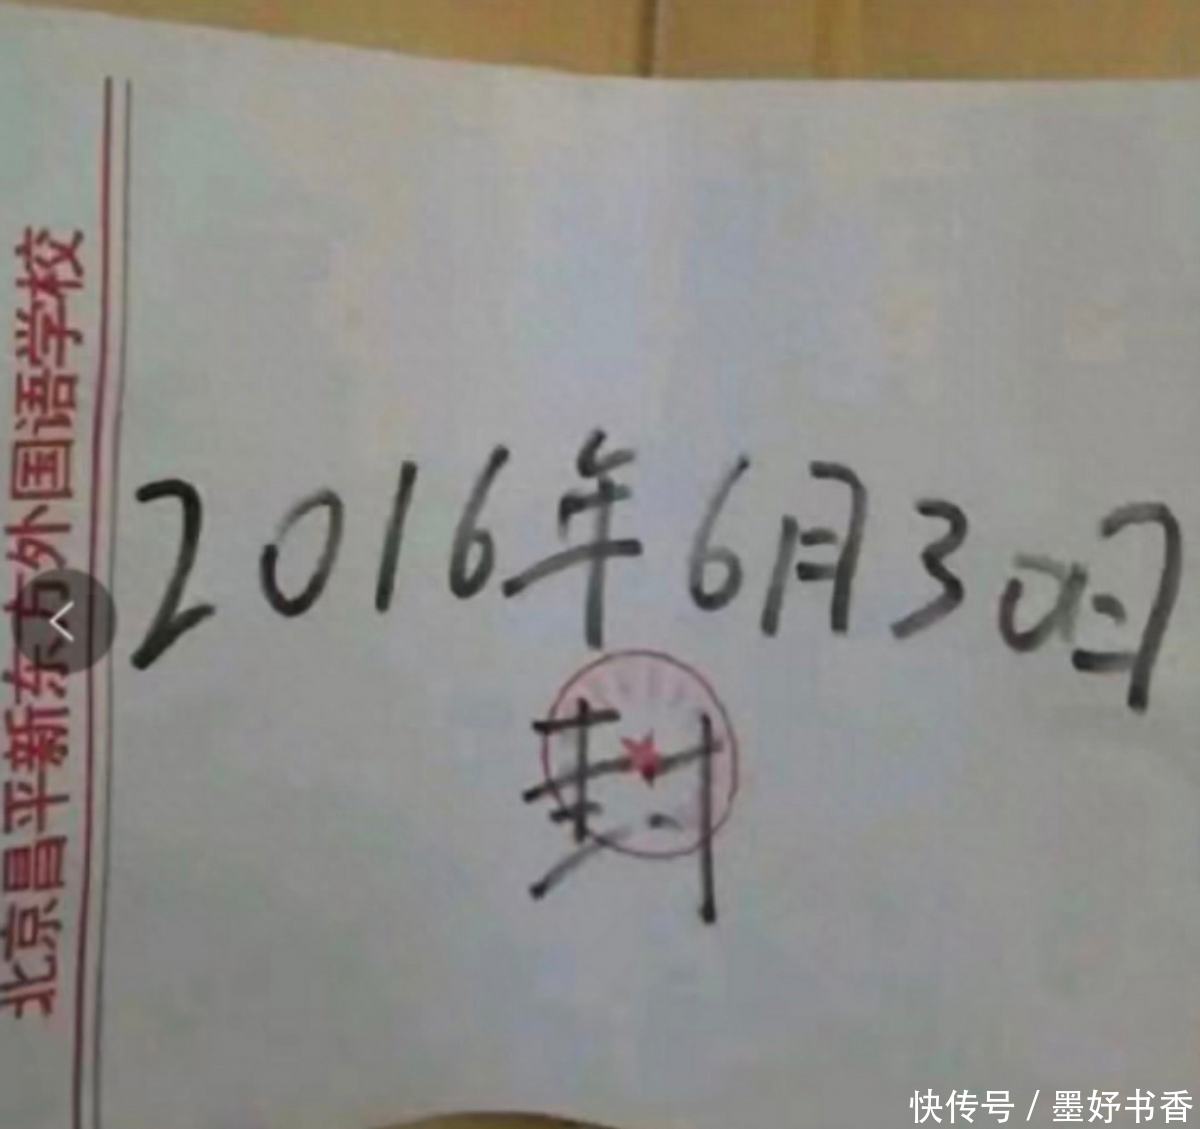 北京昌平新东方外国语学校
2016年6月30日
封
快传号 / 墨妤书香